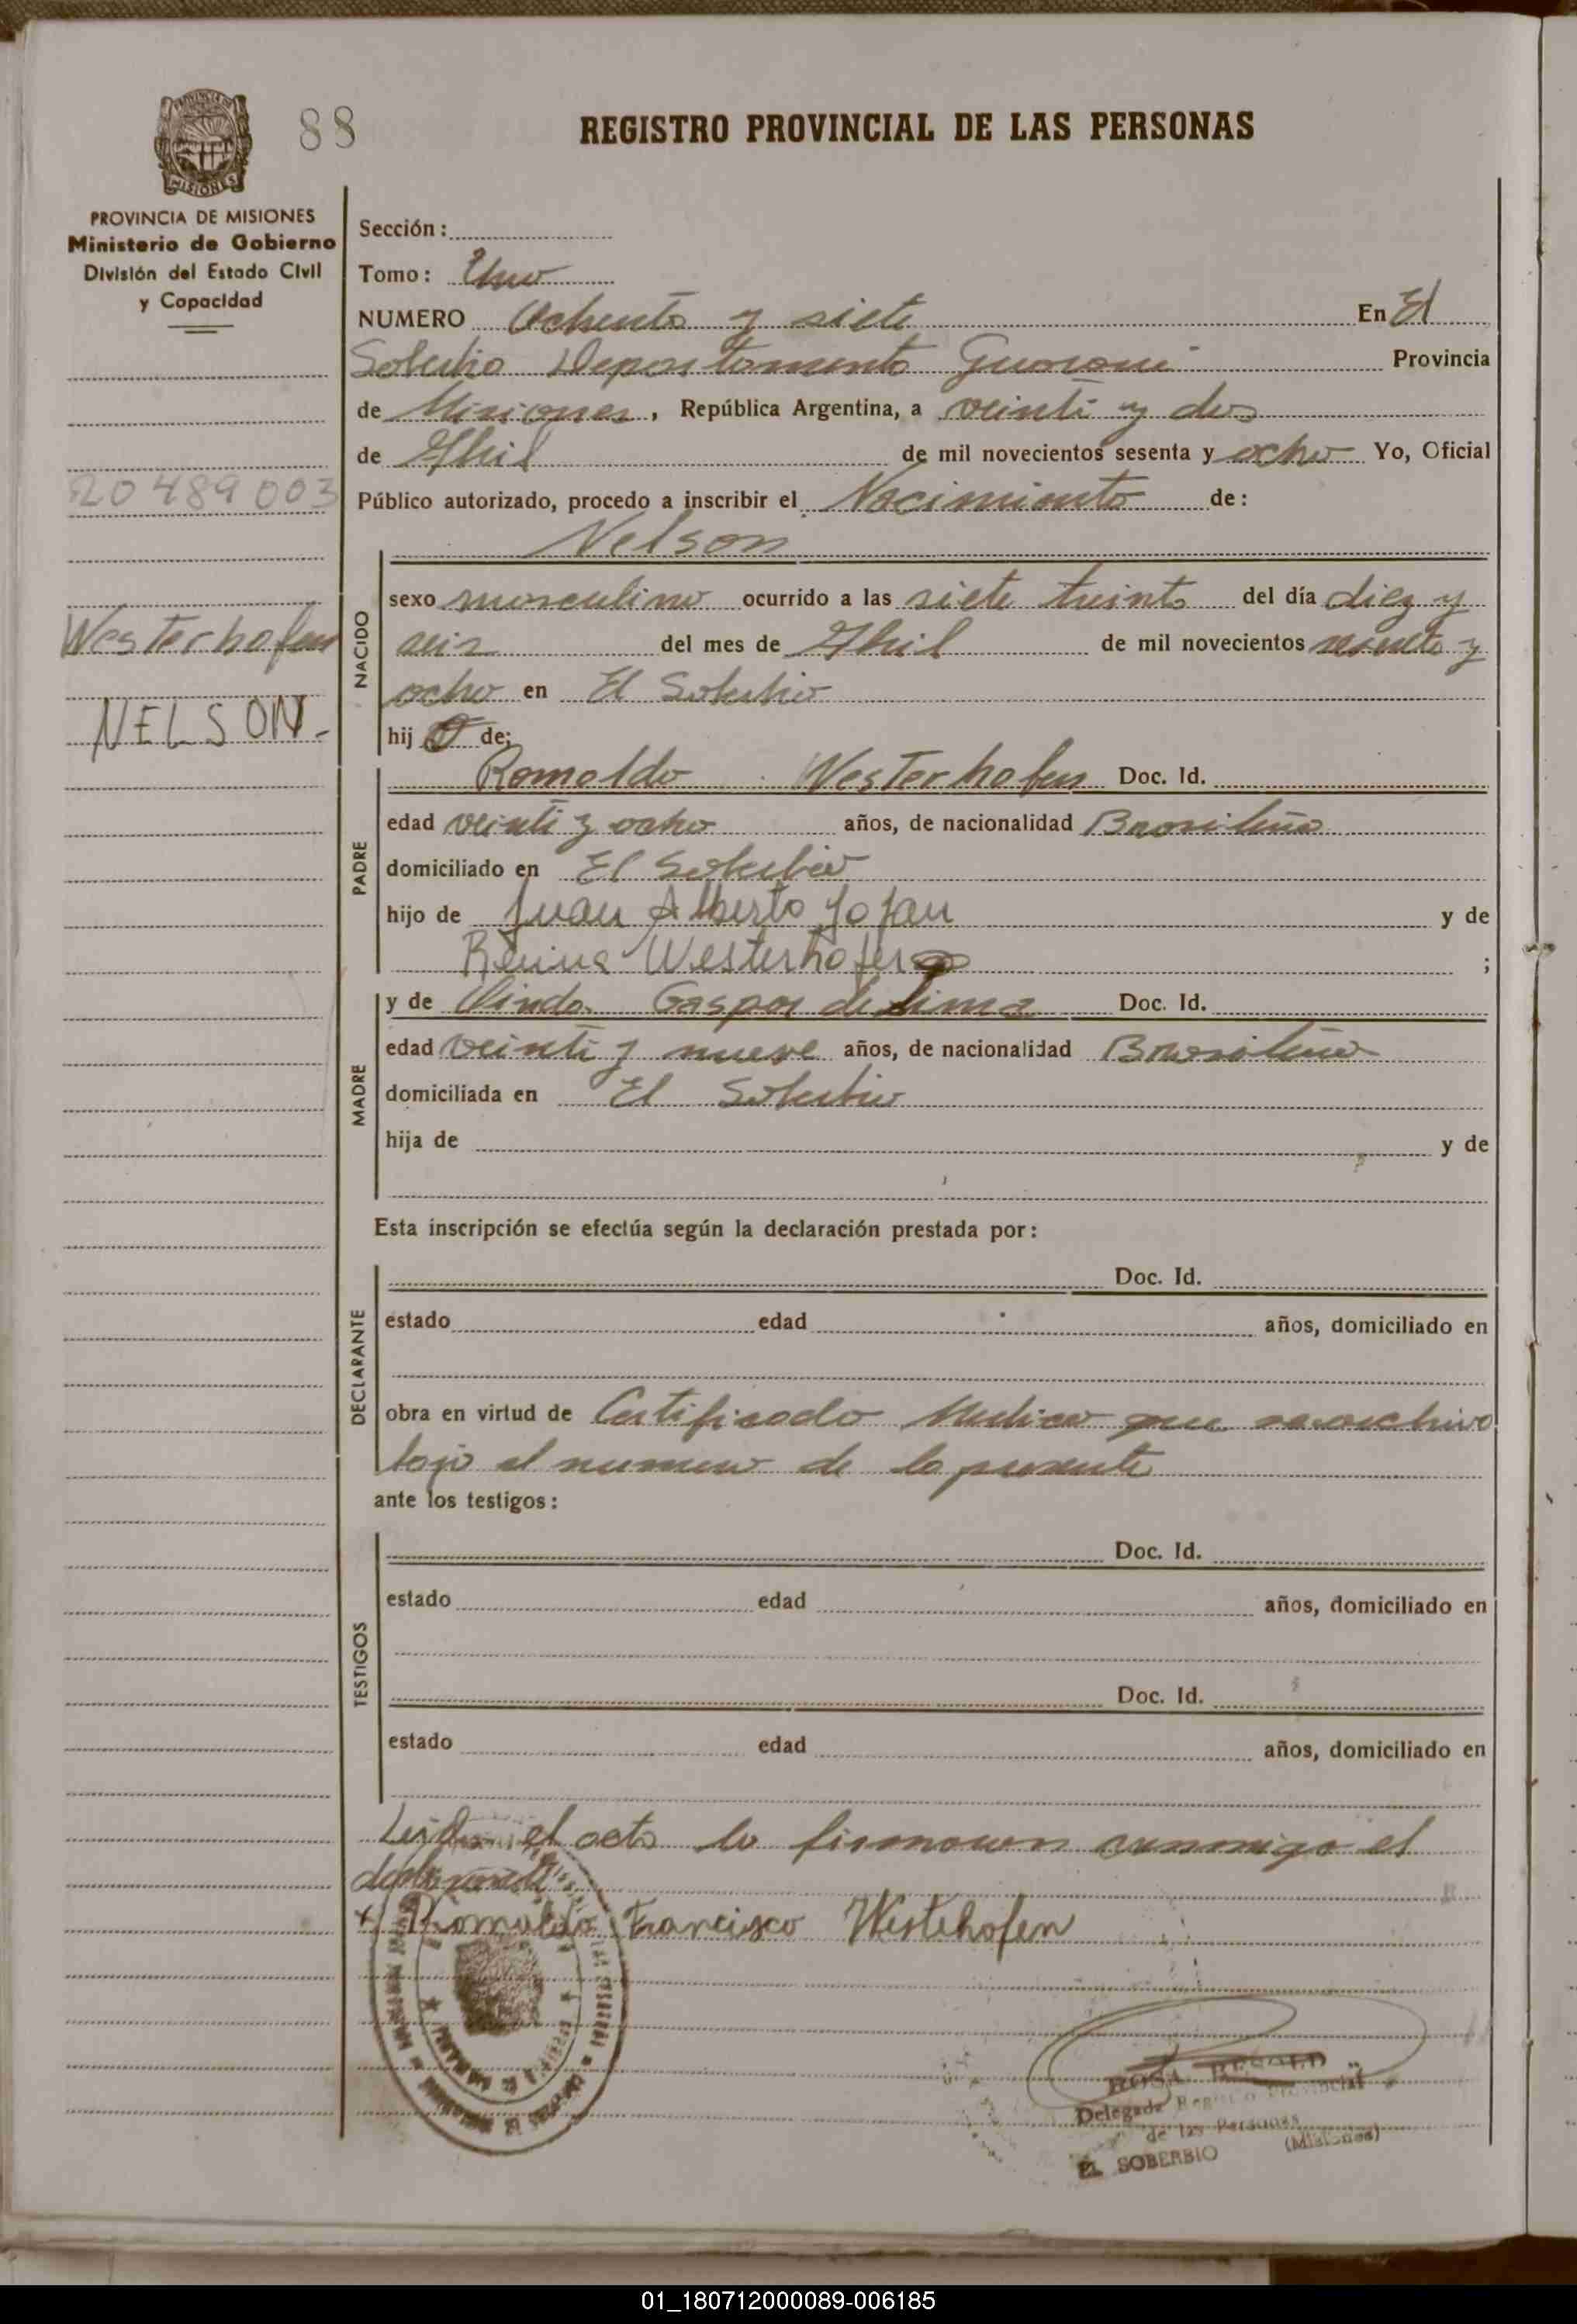 88
REGISTRO PROVINCIAL DE LAS PERSONAS
PROVINCIA DE MISIONES
MISIONES
PROVINCIA DE MISIONES
Ministerio de Gobierno
División del Estado Civil
y Capacidad
20489003
Westerhofen
NELSON.-
Sección:
Tomo: Uno
NUMERO Ochenta y siete En El
Soberbio Departamento Guarani Provincia
de Misiones, República Argentina, a veinti y dos
de Abril de mil novecientos sesenta y ocho Yo, Oficial
Público autorizado, procedo a inscribir el Nacimiento de:
Nelson
NACIDO
sexo masculino ocurrido a las siete treinta del día diez y
seis del mes de Abril de mil novecientos sesenta y
ocho en El Soberbio
hij o de;
PADRE
Romaldo Westerhofen Doc. Id.
edad veinti y ocho años, de nacionalidad Brasileña
domiciliado en El Soberbio
hijo de Juan Alberto y de
Westerhofen ;
MADRE
y de Gaspar de Lima Doc. Id.
edad veinti y nueve años, de nacionalidad Brasileña
domiciliada en El Soberbio
hija de y de
Esta inscripción se efectúa según la declaración prestada por:
DECLARANTE
Doc. Id.
estado edad años, domiciliado en
obra en virtud de Certificado Medico que se archiva
bajo el numero de la presente
ante los testigos:
TESTIGOS
Doc. Id.
estado edad años, domiciliado en
Doc. Id.
estado edad años, domiciliado en
Leida el acta la firmaron conmigo el
declarante
Romaldo Francisco Westehofen
ROSA
Delegada Registro Provincial
de las Personas
EL SOBERBIO (Misiones)
01_180712000089-006185